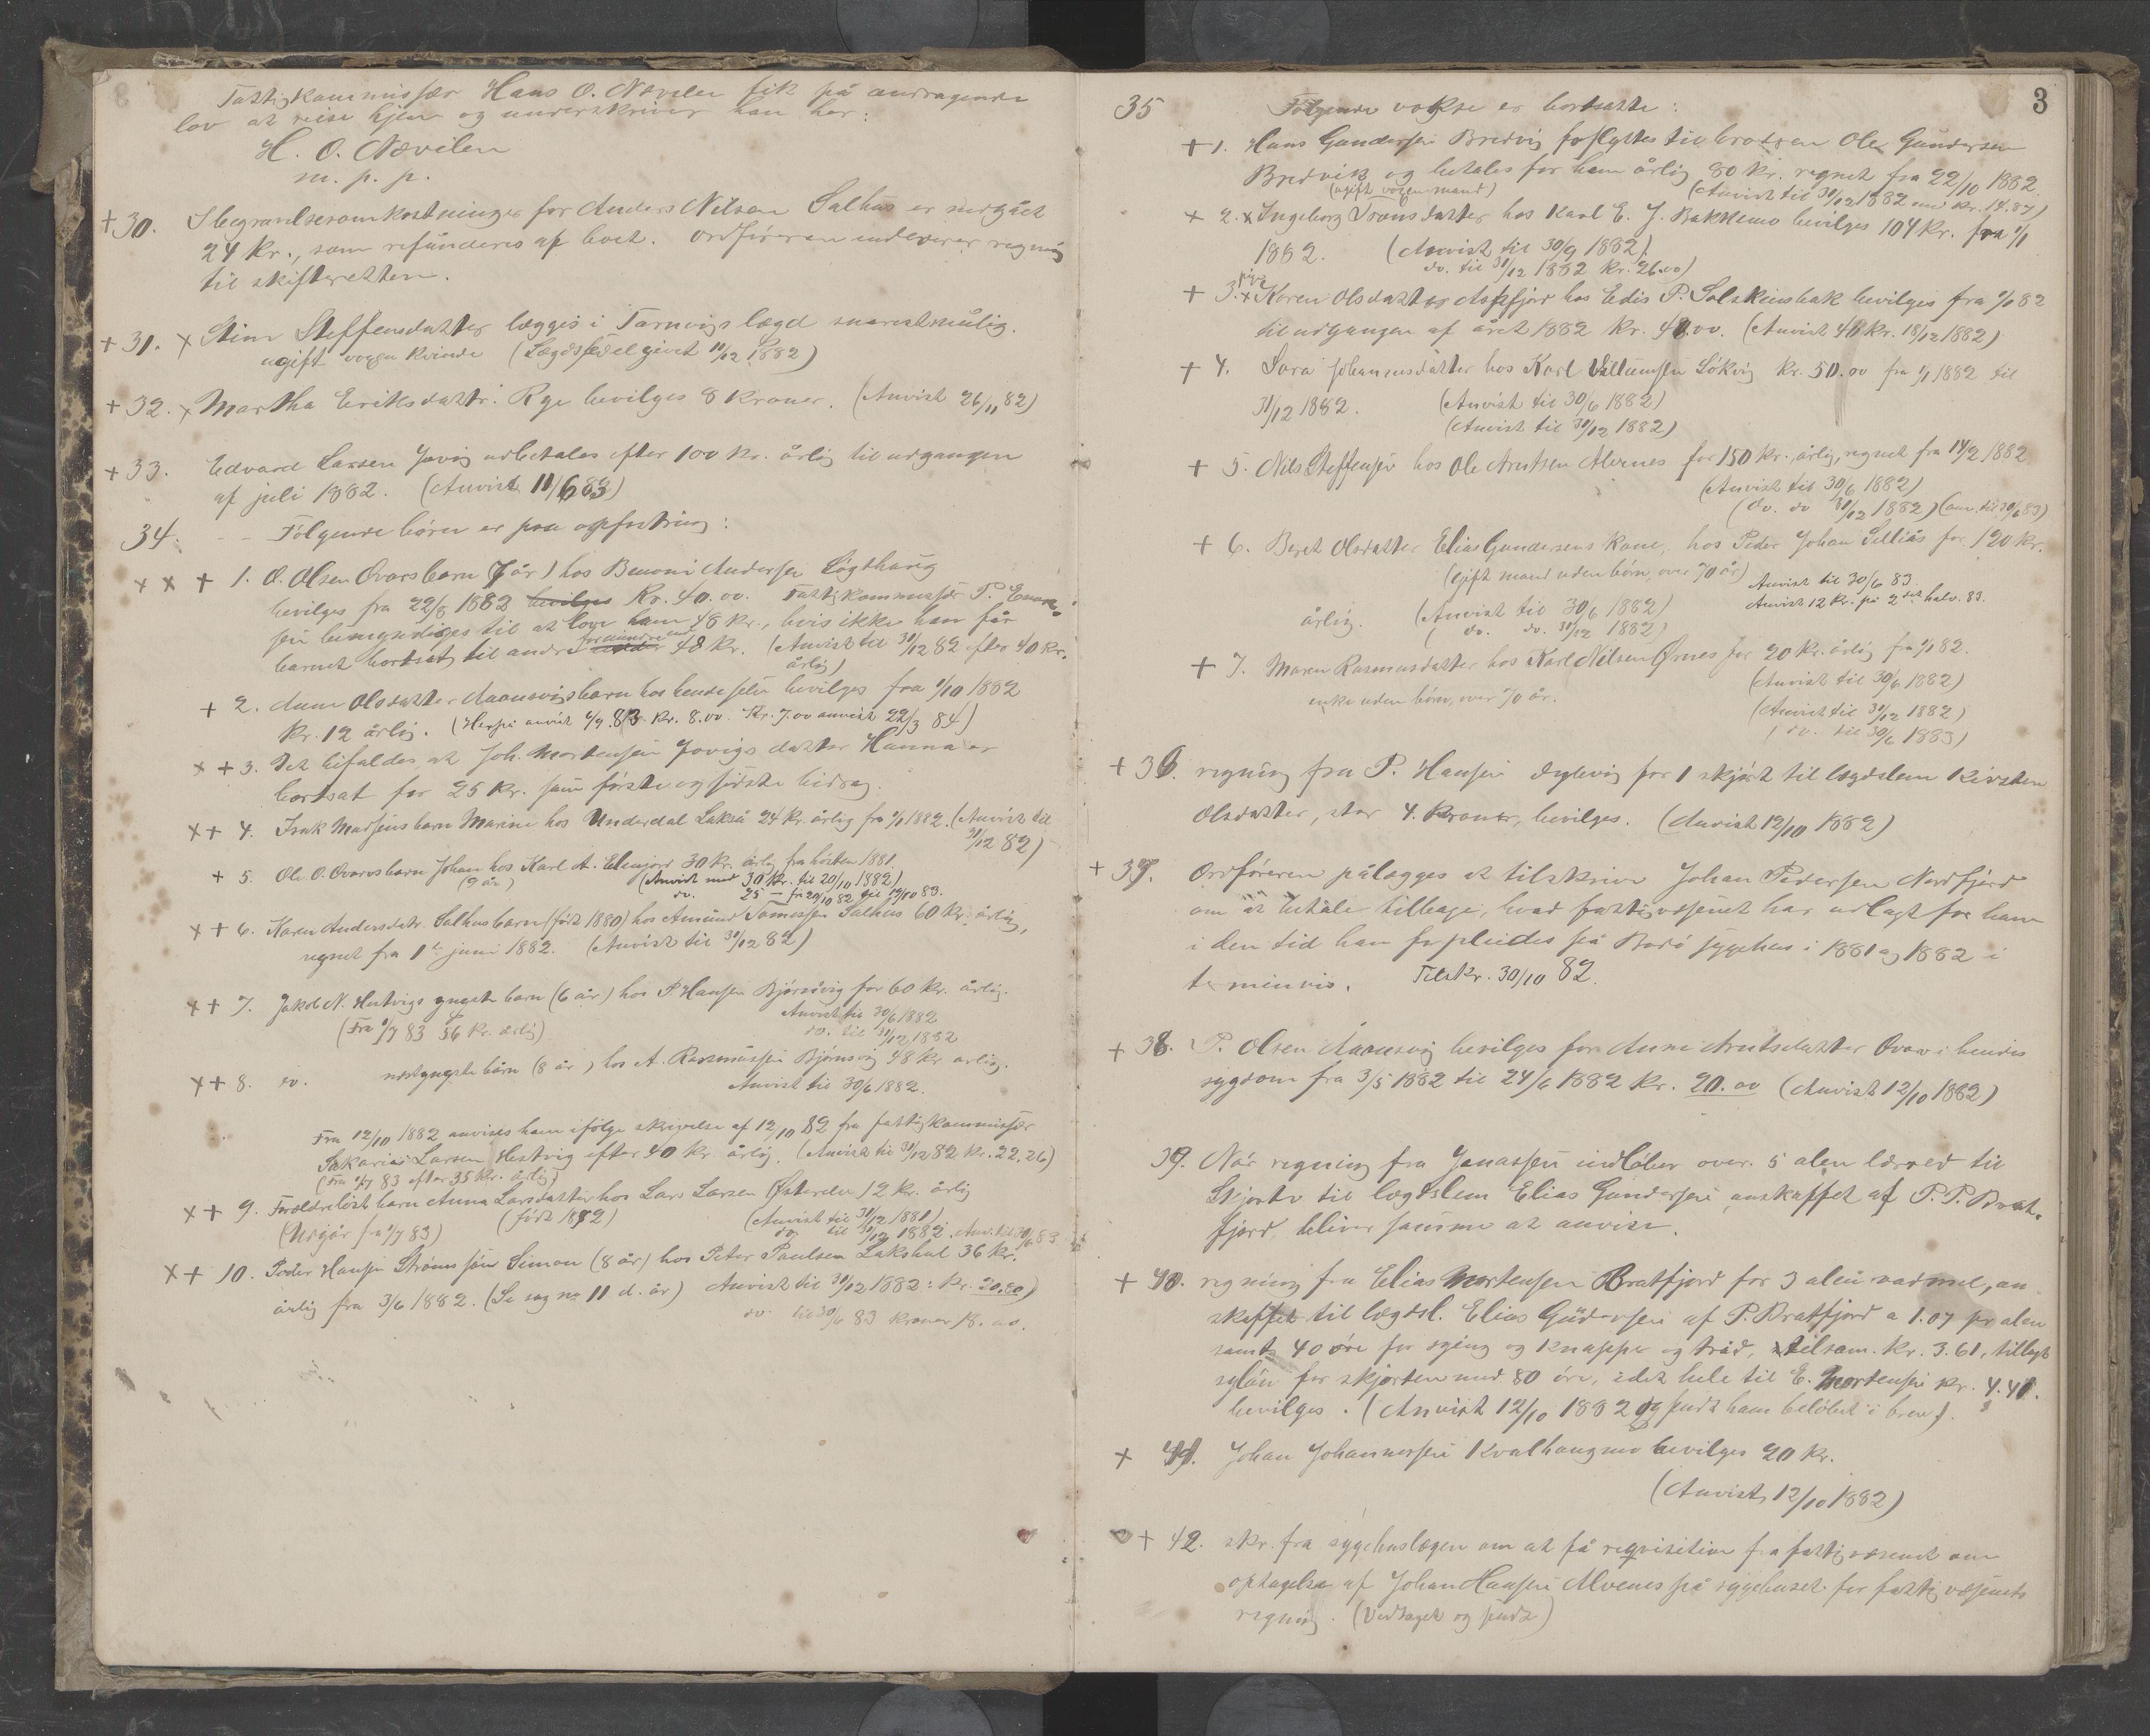 Fattigkommissær Hans O. Nævelen fik på andragende
lov at reise hjem og underskriver han her:
H. O. Nævilen
m. p. p.
+30. I begravelsesomkostninger for Anders Nilsen Salhus er medgået
24 kr., som refunderes af boet. Ordføreren indleverer regning
til skifteretten.
+31. x Stine Steffensdatter lægges i Tarnvigs lægd snarestmulig.
ugift voxen kvinde (Lægdsseddel givet 11/12 1882)
+32. x Martha Eriksdatr. Rge bevilges 8 kroner. (Anvist 26/11 82)
+33. Edvard Larsen Jovig udbetales efter 100 kr. årlig til udgangen
af juli 1882. (Anvist 11/6 83)
34. -- Følgende børn er paa opfostring:
x x + 1. O. Olsen Qvarsbarn (7 år) hos Benoni Andersen Lögthaug
bevilges fra 22/8 1882 bevilges Kr. 40.00. Fattigkommissær P.
sen bemyndiges til at love ham 48 kr., hvis ikke han får
barnet bortsat til andre for mindre end 48 kr. (Anvist til 31/12 82 efter 40 kr.
årlig)
+ 2. Anne Olsdatter barn hos hende selv bevilges fra 1/10 1882
kr. 12 årlig. (Herpå anvist 4/9 83 kr. 8.00. Kr. 7.00 anvist 22/3 84)
x + 3. Det bifaldes, at Joh. Mortensen Jovigs datter Hanna er
bortsat for 25 kr. som første og sidste bidrag.
x+ 4. Isak Madsens barn Marine hos Underdal Lakså 24 kr. årlig fra 1/1 1882. (Anvist til
31/12 82)
+ 5. Ole O. Qvarvs barn Johan hos Karl A. Elvejord 30 kr. årlig fra høsten 1881.
(9 år) (Anvist med 30 kr. til 20/10 1882)
do. 25 — fra 20/10 82 til 19/10 83.
x + 6. Karen Andersdatr. Salhus barn (født 1880) hos Amund Tomassen Salhus 60 kr. årlig,
regnet fra 1ste juni 1882. (Anvist til 31/12 82)
x + 7. Jakob N. Hestvigs yngste barn (6 år) hos P Hansen Bjørnsvig for 60 kr. årlig.
(Fra 1/7 83 56 kr. årlig) Anvist til 30/6 1882
do. til 31/12 1882
x+ 8. do. næstyngste barn (8 år) hos A. Rasmussen Bjørnsvig 48 kr årlig.
Anvist til 30/6 1882.
Fra 12/10 1882 anvises ham ifølge skrivelse af 12/10 82 fra fattigkommissær
Sakarias Larsen Hestvig efter 40 kr. årlig. (Anvist til 31/12 82 kr. 22.26)
(Fra 1/7 83 efter 35 kr. årlig)
x+ 9. Forældreløst barn Anna Larsdatter hos Lars Larsen 12 kr. årlig
(Udgår fra 1/7 83) (født 1872) (Anvist til 31/12 1881)
do til 31/12 1882. Anv. til 30/6 83
x+ 10. Peder Hansen Strøms søn Simon (8 år) hos Peter Paulsen Lakshul 36 kr.
årlig fra 3/6 1882. (Se sag no 11 d. år) Anvist til 31/12 1882: kr. 20.80)
do til 30/6 83 kroner 18.00.
3
35 Følgende voksne er bortsatte:
+ 1. Hans Gundersen Bredvig forflyttes til broderen Ole Gundersen
Bredvik og betales for ham årlig 80 kr. regnet fra 22/10 1882.
(ugift voxen mand) (Anvist til 31/12 1882 med kr. 14.87)
+ 2. x Ingeborg Tronsdatter hos Karl E. J. Bakkemo bevilges 104 kr. fra 1/1
1882. (Anvist til 30/9 1882).
do. til 31/12 1882 kr. 26.00)
+ 3. x Karen Olsdatter Aspfjor hos Edis P. Solskinsbak bevilges fra 1/1 82
til udgangen af året 1882 kr. 40.00. (Anvist 40 kr. 18/12 1882)
+ 4. Sara Johannesdatter hos Karl Villumsen Løkvig kr. 50.00 fra 1/1 1882 til
31/12 1882. (Anvist til 30/6 1882)
(Anvist til 31/12 1882)
+ 5. Nils Steffensen hos Ole Arntsen Alvenes for 150 kr. årlig, regnet fra 14/2 1882
(Anvist til 30/6 1882)
(do. do 31/12 1882) (anv. til 30/6 83)
+ 6. Beret Olsdatter Elias Gundersens kone, hos Peder Johan Sellias for 120 kr.
(gift mand uden børn, over 70 år) Anvist til 30/6 83.
Anvist 12 kr. på 2det halv. 83.
årlig. (Anvist til 30/6 1882)
( do. do. 31/12 1882)
+ 7. Maren Rasmusdatter hos Karl Nilsen Ørnes for 20 kr. årlig fra 1/1 82.
(Anvist til 30/6 1882)
enke uden børn, over 70 år.
(Anvist til 31/12 1882)
( do. til 30/6 1883)
+ 36. regning fra P. Hansen Dyb­vig for 1 skjørt til lægdslem Kirsten
Olsdatter, stor 4. Kroner, bevilges. (Anvist 12/10 1882)
+ 37. Ordføreren pålægges at tilskrive Johan Pedersen Nordfjord
om at betale tilbage, hvad fattigvæsenet har udlagt for ham
i den tid han forpleiedes på Bodø sygehus i 1881 og 1882 i
terminvis. Tilskr. 30/10 82.
+ 38. P. Olsen bevilges for Anne Arntsdatter Qvarv i hendes
sygdom fra 3/5 1882 til 24/6 1882 kr. 20.00 (Anvist 12/10 1882)
39. Når regning fra Jonassen indløber over 5 alen lærred til
Skjorte til lægdslem Elias Gundersen, anskaffet af P. P. Brat-
fjord, bliver samme at anvise.
+ 40. regning fra Elias Mortensen Bratfjord for 3 alen vadmel, an-
skaffet til lægdsl. Elias Gundersen af P. Bratfjord a 1.07 pr alen
samt 40 øre for sying og knapper og tråd, tilsam. kr. 3.61, tillagt
syløn for skjorten med 80 øre, i det hele til E. Mortensen kr. 4.41.
bevilges. (Anvist 12/10 1882 og sendt ham beløbet i brev).
+ 41. Johan Johannessen Kvalhaugmo bevilges 20 kr.
(Anvist 12/10 1882)
+ 42. skr. fra sygehuslægen om at få reqvisition fra fattigvæsenet om
optagelse af Johan Hansen Alvenes på sygehuset for fattigvæsenets
regning. (Vedtaget og sendt)